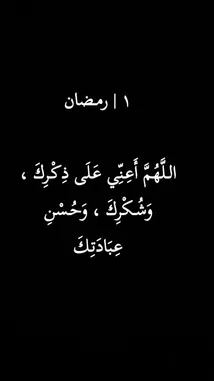 ١ | رمضان
اللَّهُمَّ أَعِنِّي عَلَى ذِكْرِكَ ،
وَشُكْرِكَ ، وَحُسْنِ
عِبَادَتِكَ